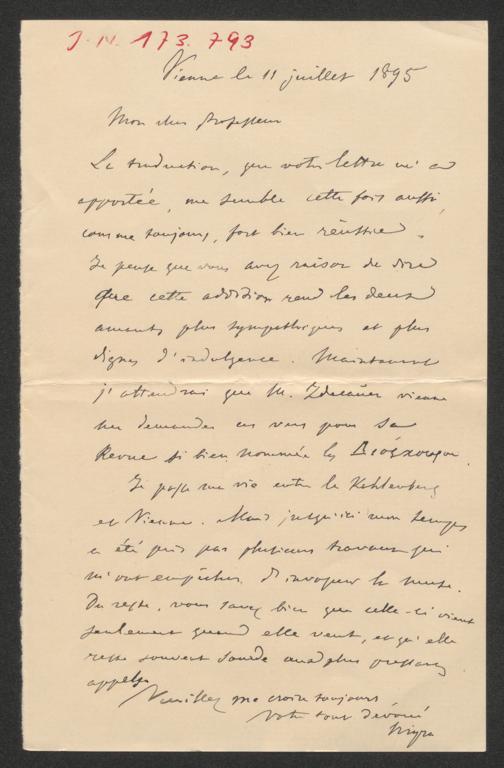 J.N. 173.793
Vienne le 11 juillet 1895
Mon cher Professeur
La traduction, que votre lettre m'a
apportée, me semble cette fois aussi,
comme toujours, fort bien réussie.
Je pense que vous avez raison de dire
que cette addition rend les deux
amants plus sympathiques et plus
dignes d'indulgence. Maintenant
j'attendrai que M. Zdecauer vienne
me demander ces vers pour sa
Revue si bien nommée les Διόσκουροι.
Je passe ma vie entre le Kahlenberg
et Vienne. Mais jusqu'ici mon temps
a été pris par plusieurs travaux qui
m'ont empêché d'invoquer la muse.
Du reste, vous savez bien que celle-ci vient
seulement quand elle veut, et qu'elle
reste souvent sourde aux plus pressants
appels.
Veuillez me croire toujours
Votre tout dévoué
Nigra